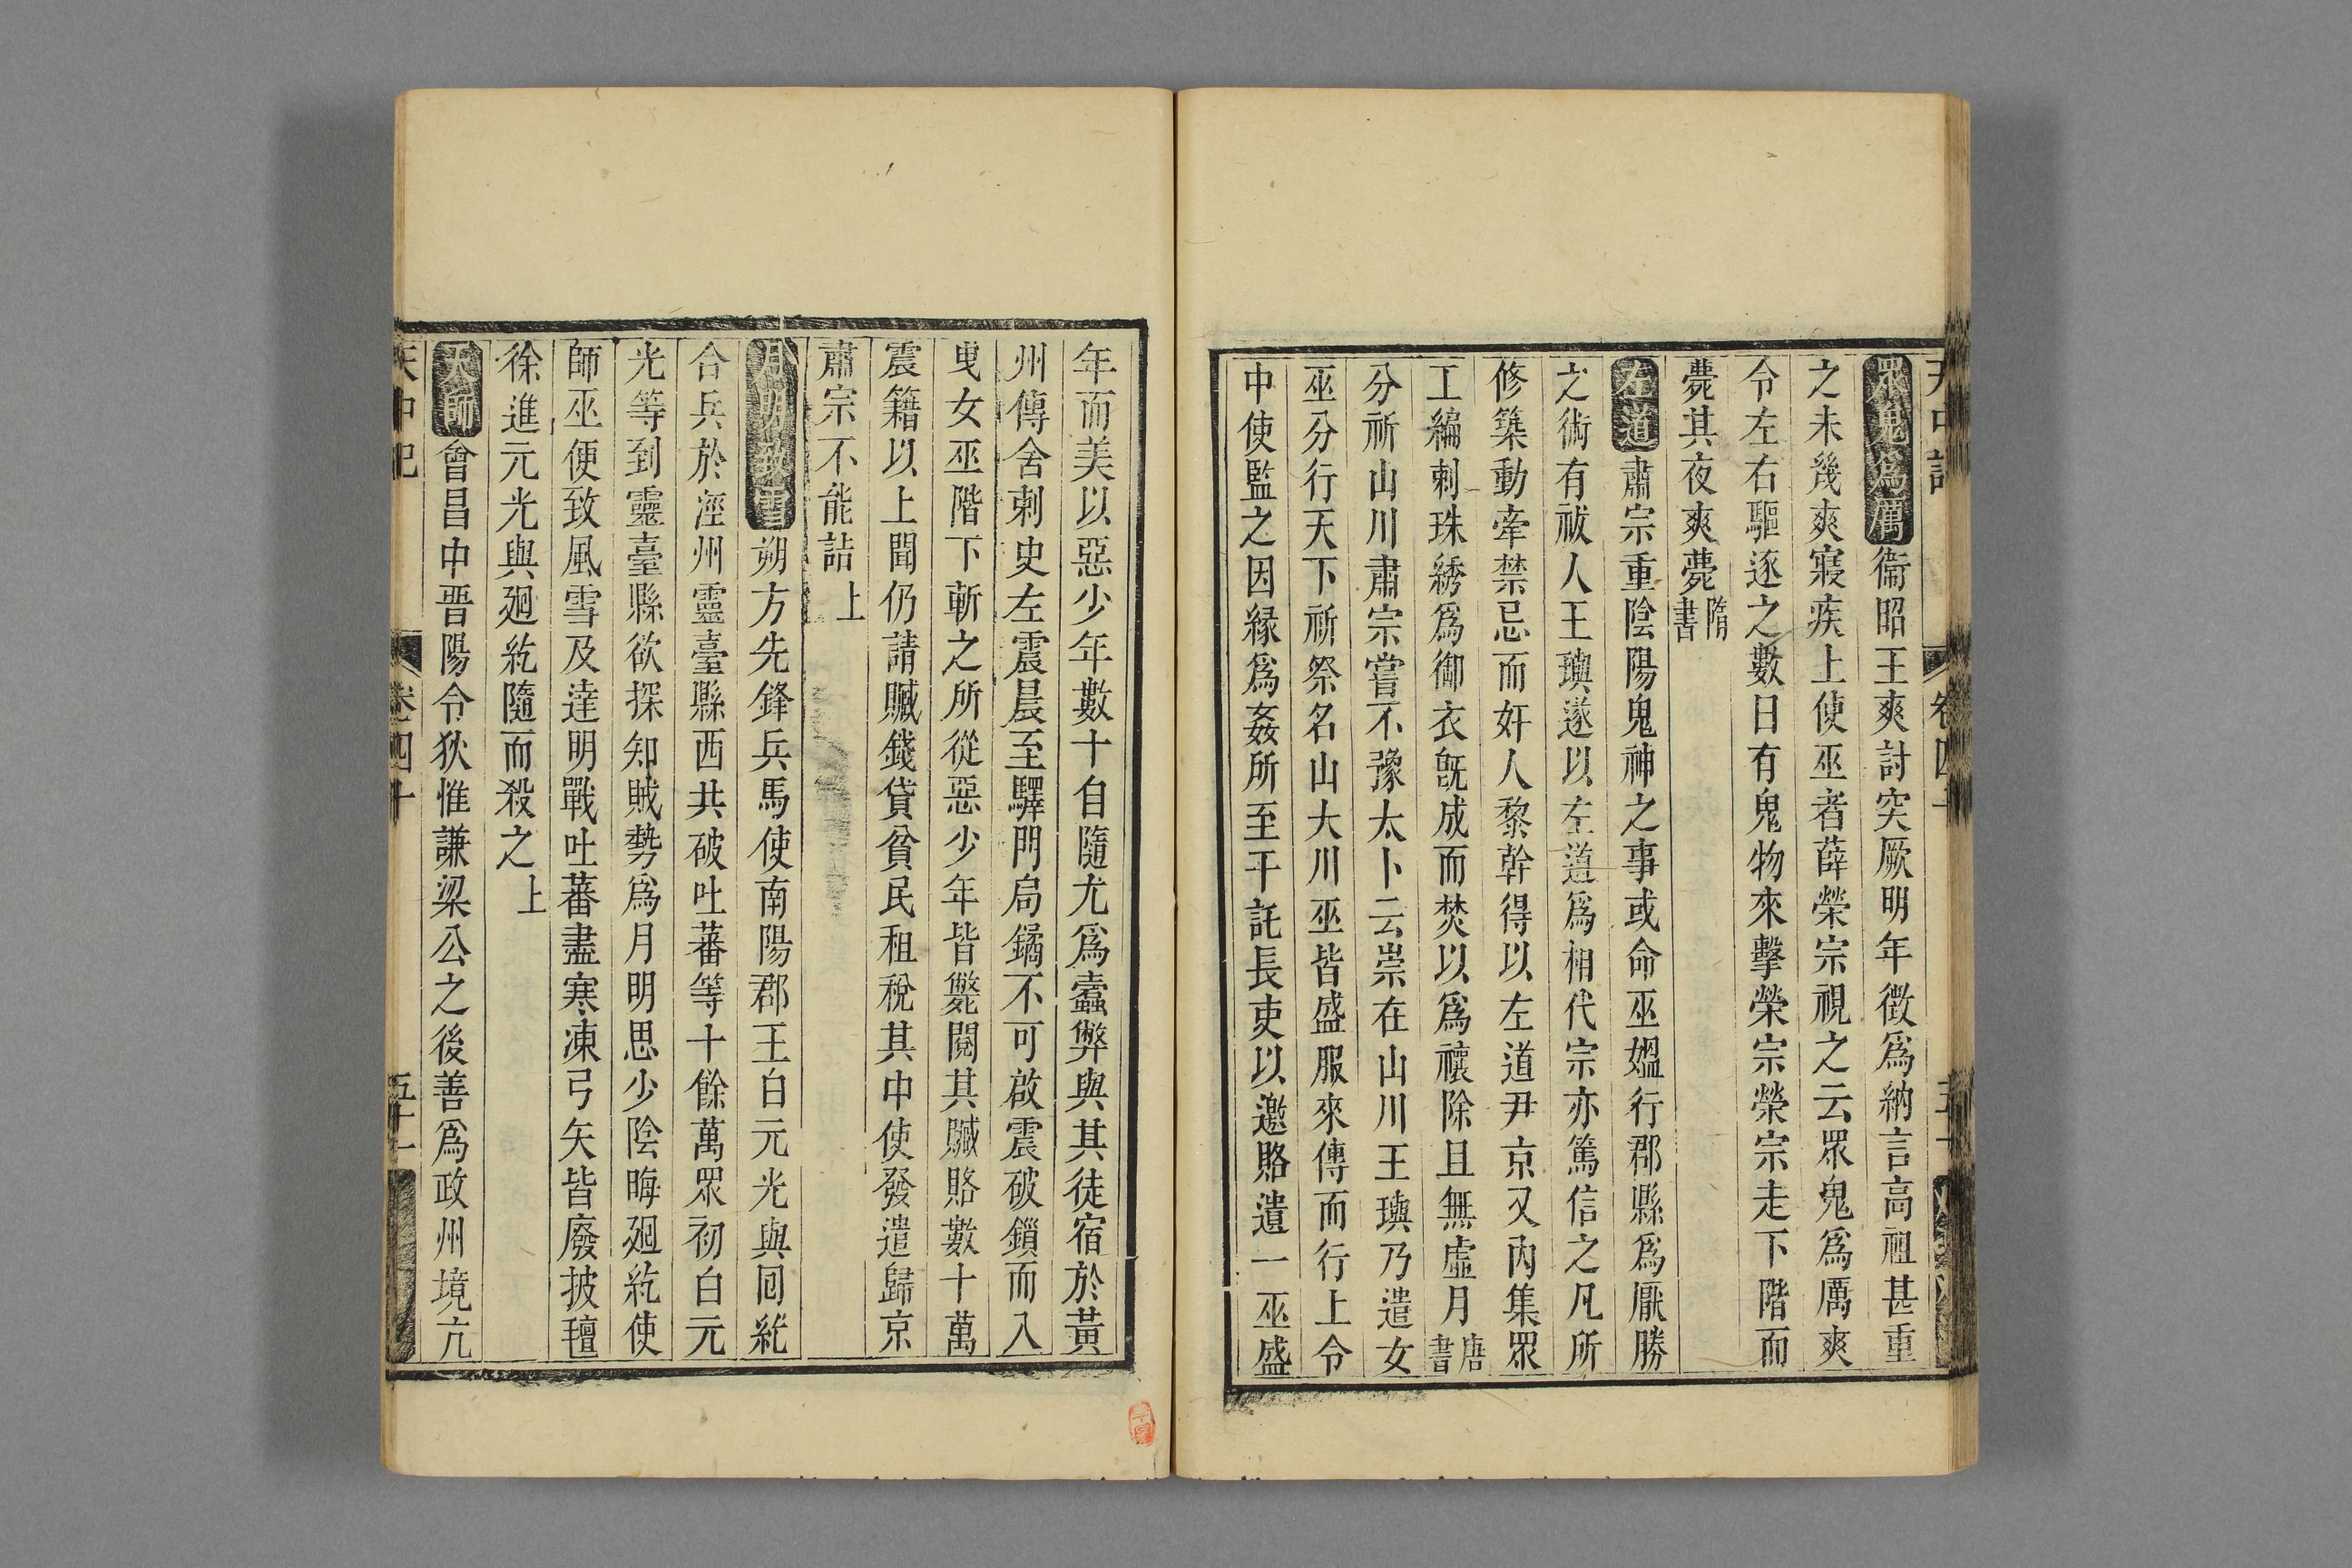 天中記 卷四十
眾鬼爲厲衞昭王爽討突厥明年徵爲納言高祖甚重
之未幾爽寢疾上使巫者薛榮宗視之云眾鬼爲厲爽
令左右驅逐之數日有鬼物來擊榮宗榮宗走下階而
斃其夜爽薨隋書
左道肅宗重陰陽鬼神之事或命巫媪行郡縣爲厭勝
之術有祓人王璵遂以左道爲相代宗亦篤信之凡所
修築動牽禁忌而奸人黎幹得以左道尹京又內集眾
工編刺珠綉爲御衣旣成而焚以爲禳除且無虛月唐書
分祈山川肅宗嘗不豫太卜云祟在山川王璵乃遣女
巫分行天下祈祭名山大川巫皆盛服來傳而行上令
中使監之因緣爲姦所至干託長吏以邀賂遺一巫盛
年而美以惡少年數十自隨尤爲蠹弊與其徒宿於黃
州傳舍刺史左震晨至驛門扃鐍不可啟震破鎖而入
曳女巫階下斬之所從惡少年皆斃閱其贓賂數十萬
震籍以上聞仍請贓錢貸貧民租稅其中使發遣歸京
肅宗不能詰上
月明致雪朔方先鋒兵馬使南陽郡王白元光與囘紇
合兵於涇州靈臺縣西共破吐蕃等十餘萬眾初白元
光等到靈臺縣欲探知賊勢爲月明思少陰晦廻紇使
師巫便致風雪及逹明戰吐蕃盡寒凍弓矢皆廢披氊
徐進元光與廻紇隨而殺之上
天師會昌中晉陽令狄惟謙梁公之後善爲政州境亢
天中記 卷四十 五十一